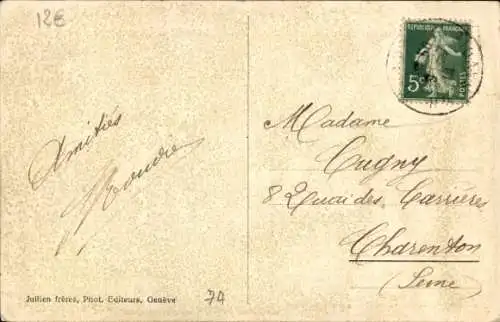 12€
Amitiés
RÉPUBLIQUE FRANÇAISE
5c
POSTES
Madame
Cugny
8 Quai des Carrières
Charenton
(Seine)
Jullien frères, Phot. Editeurs, Genève
74